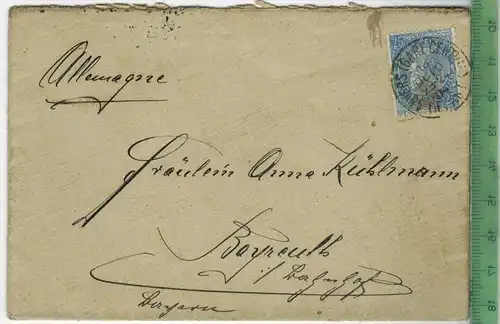 Allemagne
Fräulein Anna Kühlmann
Bayreuth
i/ Bahnhof
Bayern
25